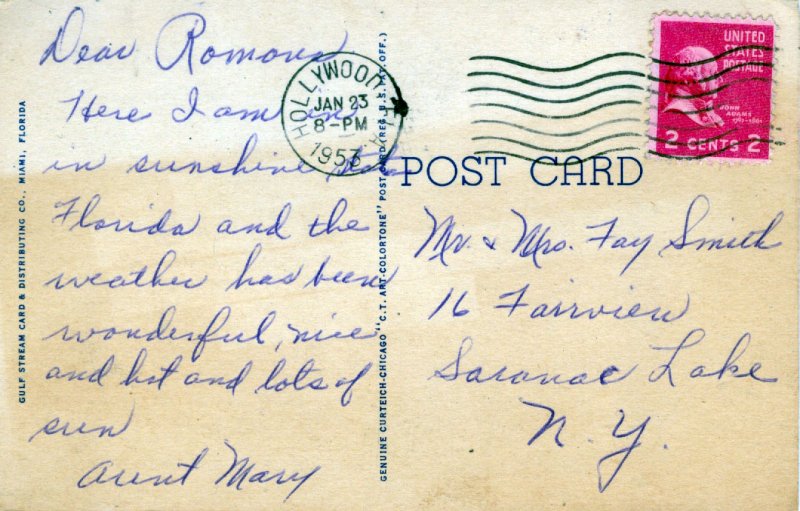 Dear Romona
Here I am in
in sunshine state
Florida and the
weather has been
wonderful, nice
and hot and lots of
sun
Aunt Mary
GULF STREAM CARD & DISTRIBUTING CO., MIAMI, FLORIDA
GENUINE CURTEICH-CHICAGO "C.T. ART-COLORTONE" POST CARD (REG. U.S. PAT. OFF.)
HOLLYWOOD
JAN 23
8-PM
1953
UNITED
STATES
POSTAGE
JOHN
ADAMS
1797-1801
2 CENTS 2
POST CARD
Mr. & Mrs. Fay Smith
16 Fairview
Saranac Lake
N.Y.